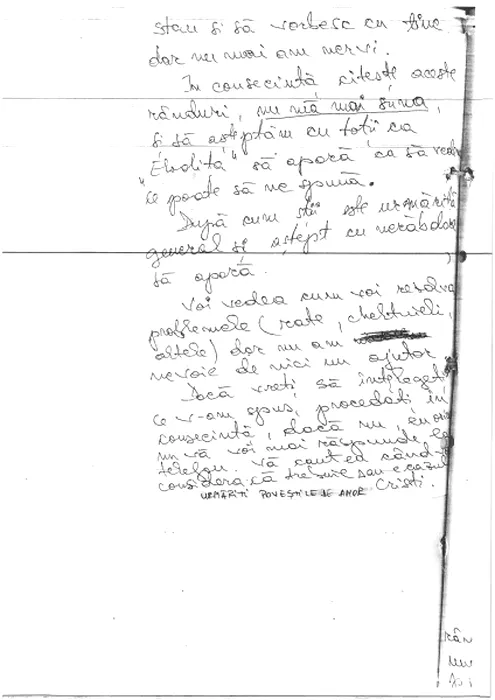 stau și să vorbesc cu tine
dar nu mai am nervi.
În consecință citește aceste
rânduri, nu mă mai suna,
și să așteptăm cu toții ca
"Evadita" să apară ca să
ce poate să ne spună.
După cum știi este urmărită
general și aștept cu nerăbdare
să apară.
Voi vedea cum voi rezolva
problemele (rate, cheltuieli,
altele) dar nu am
nevoie de nici un ajutor
Dacă vreți să înțelegeți
ce v-am spus, procedați în
consecință, dacă nu,
nu vă voi mai răspunde la
telefon. Vă caut eu când
considera că trebuie sau e cazul
URMĂRIȚI POVEȘTILE DE AMOR Cristi.
rân